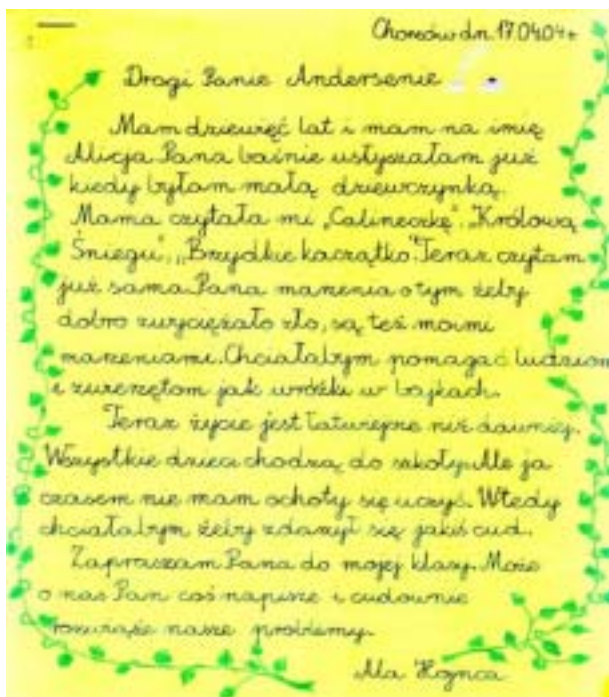 Chorzów dn. 17.04.04 r.
Drogi Panie Andersenie
Mam dziewięć lat i mam na imię
Alicja Pana baśnie usłyszałam już
kiedy byłam małą dziewczynką.
Mama czytała mi „Calineczkę”, „Królową
Śniegu”, „Brzydkie kaczątko”. Teraz czytam
już sama. Pana marzenia o tym żeby
dobro zwyciężało zło, są też moimi
marzeniami. Chciałabym pomagać ludziom
i zwierzętom jak wróżki w bajkach.
Teraz życie jest łatwiejsze niż dawniej.
Wszystkie dzieci chodzą do szkoły. Ale ja
czasem nie mam ochoty się uczyć. Wtedy
chciałabym żeby zdarzył się jakiś cud.
Zapraszam Pana do mojej klasy. Może
o nas Pan coś napisze i cudownie
rozwiąże nasze problemy.
Ala